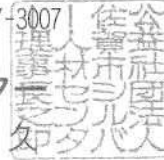 -3007
公益社団法人
佐賀市シルバー
人材センター
理事長之印
久